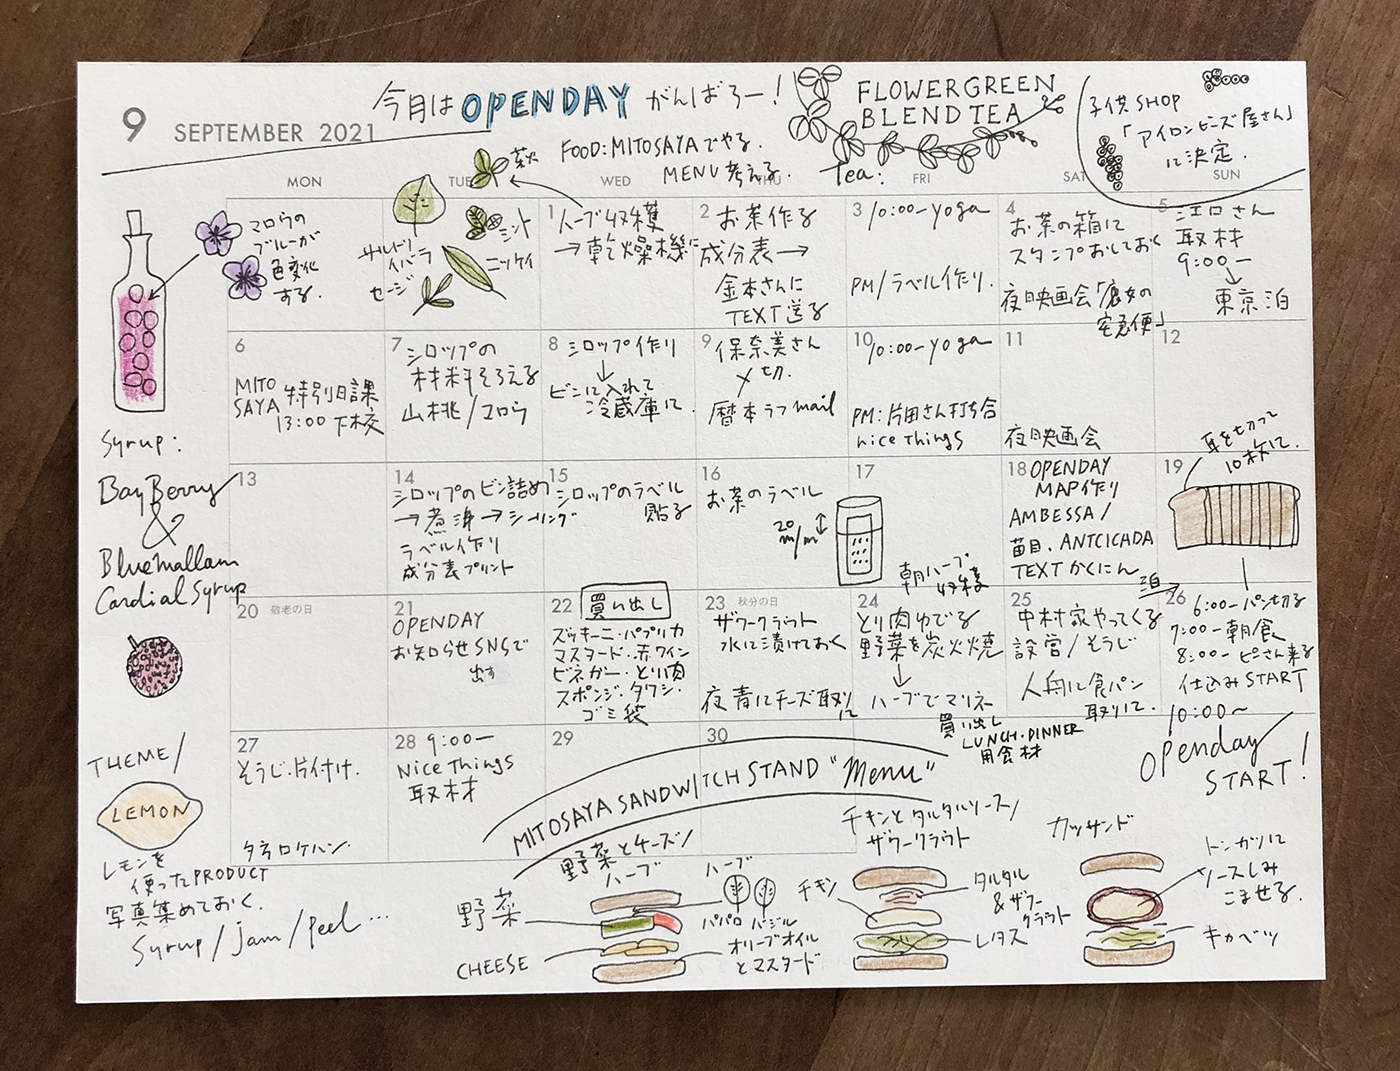 今月はOPENDAYがんばろー!
9 SEPTEMBER 2021
FOOD:MITOSAYAでやる
MENU考える.
FLOWERGREEN
BLEND TEA
Tea:
子供SHOP
「アイロンビーズ屋さん」
に決定.
MON TUE WED THU FRI SAT SUN
マロウの
ブルーが
色変化
する.
萩
ミント
ニッケイ
サルトリ
イバラ
セージ
1 ハーブ収穫
→乾燥機に
2 お茶作る
成分表→
金本さんに
TEXT送る
3 10:00-yoga
PM/ラベル作り.
4 お茶の箱に
スタンプおしておく
夜映画会「魔女の
宅急便」
5 江口さん
取材
9:00-
↓
東京泊
6
MITO
SAYA
特別日課
13:00下校
7 シロップの
材料そろえる
山桃/マロウ
8 シロップ作り
↓
ビンに入れて
冷蔵庫に.
9 保奈美さん
〆切.
暦本ラフmail
10 10:00-yoga
PM:片田さん打ち合
nice things
11
夜映画会
12
Syrup:
BayBerry
&
Bluemallow
Cordial Syrup
13
14
シロップのビン詰め
→煮沸→シーリング
ラベル作り
成分表プリント
15
シロップのラベル
貼る
16
お茶のラベル
20
m/m
17
18 OPENDAY
MAP作り
AMBESSA/
苗目.ANTCICADA
TEXTかくにん
19
耳を切って
10枚に.
20 敬老の日
21
OPENDAY
お知らせSNSで
出す
22 買い出し
ズッキーニ・パプリカ
マスタード.赤ワイン
ビネガー・とり肉
スポンジ・タワシ・
ゴミ袋
23 秋分の日
ザワークラウト
水に漬けておく
夜青にチーズ取り
に
朝ハーブ
収穫
24
とり肉ゆでる
野菜を炭火焼
↓
ハーブでマリネ
買い出し
LUNCH・DINNER
用食材
25
中村家やってくる
泊→
設営/そうじ
人舟に食パン
取りに.
26
6:00-パン切る
7:00-朝食
8:00-ピーさん来る
仕込みSTART
10:00~
openday
START!
27
そうじ.片付け.
夕方ロケハン
28 9:00-
Nice Things
取材
29
30
THEME/
LEMON
レモンを
使ったPRODUCT
写真集めておく.
Syrup/jam/peel...
MITOSAYA SANDWITCH STAND "Menu"
野菜とチーズ/
ハーブ
野菜
CHEESE
ハーブ
パパロ バジル
オリーブオイル
とマスタード
チキンとタルタルソース/
ザワークラウト
チキン
タルタル
&ザワー
クラウト
レタス
カツサンド
トンカツに
ソースしみ
こませる.
キャベツ